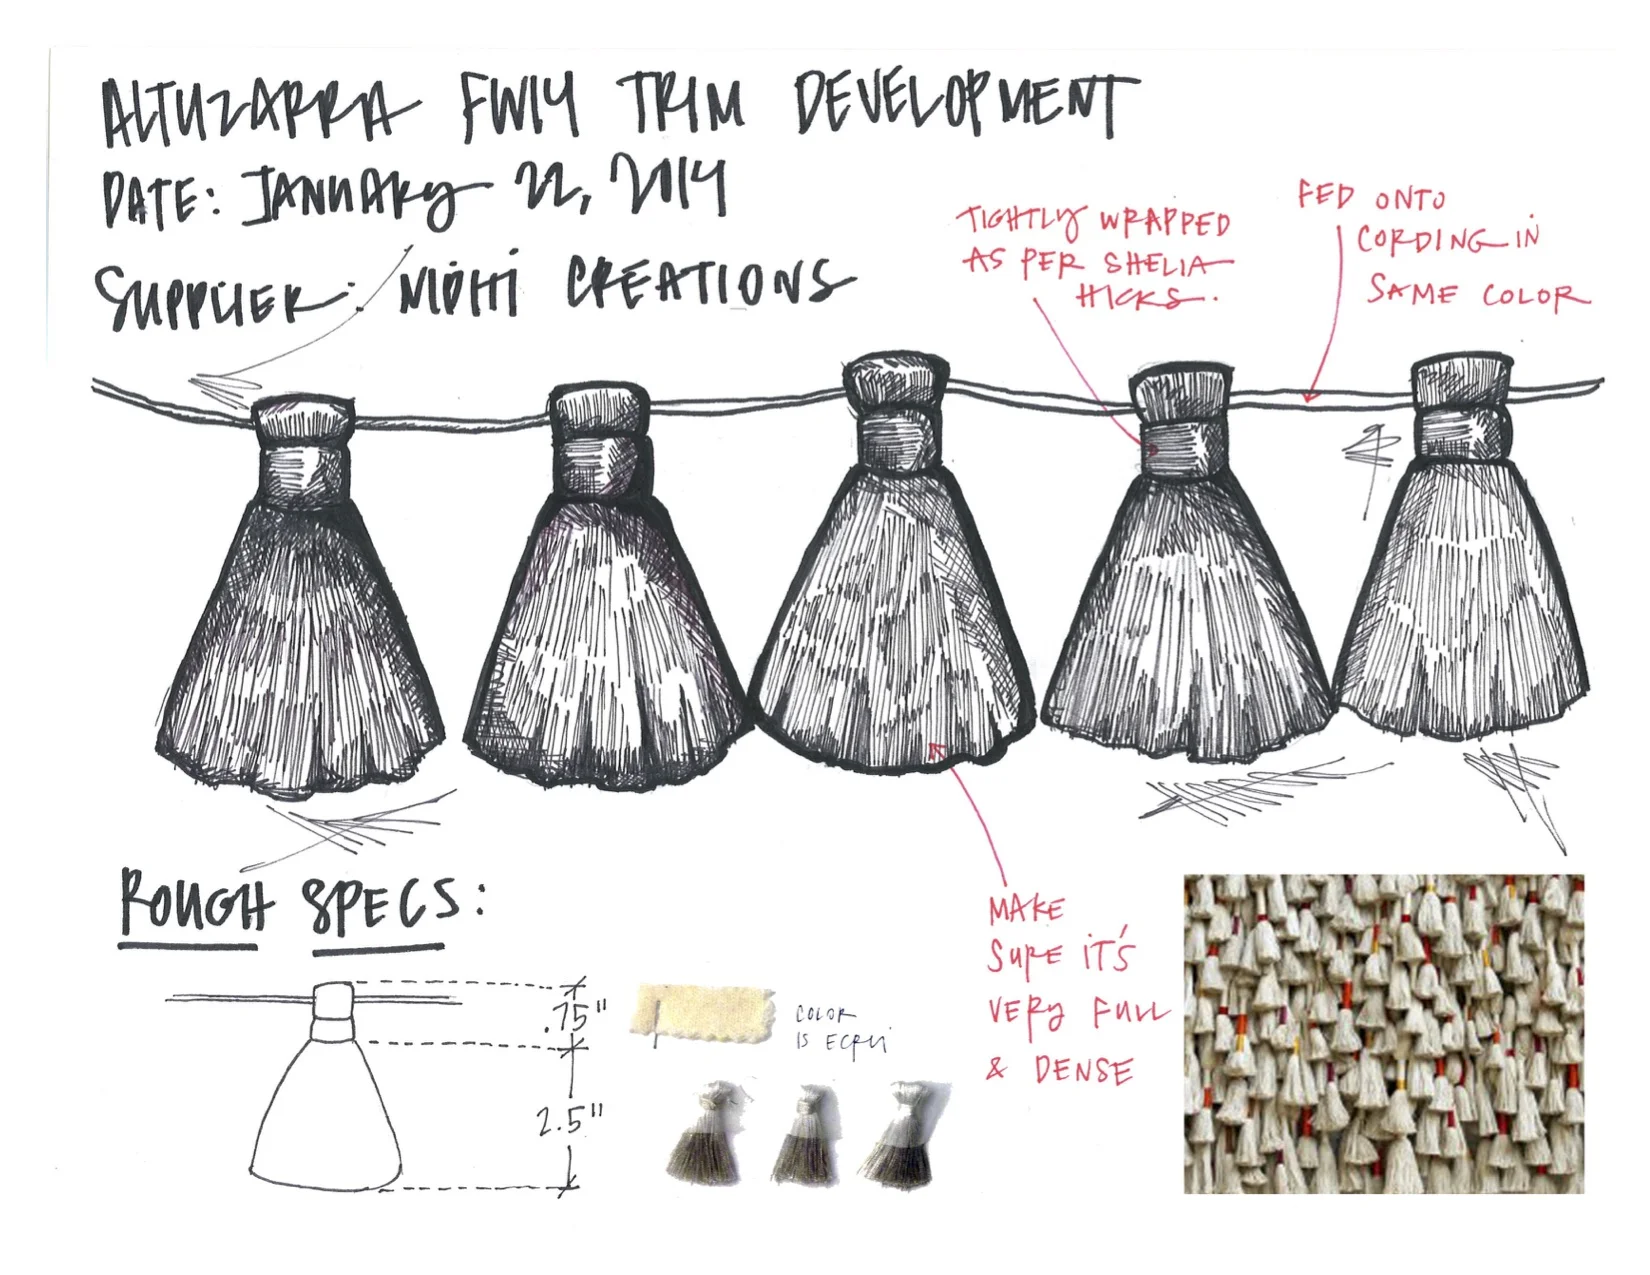 ALTUZARRA FW14 TRIM DEVELOPMENT
DATE: JANUARY 22, 2014
SUPPLIER: NIDHI CREATIONS
TIGHTLY WRAPPED
AS PER SHELIA
HICKS.
FED ONTO
CORDING IN
SAME COLOR
ROUGH SPECS:
.75"
2.5"
COLOR
IS ECRU
MAKE
SURE IT'S
VERY FULL
& DENSE